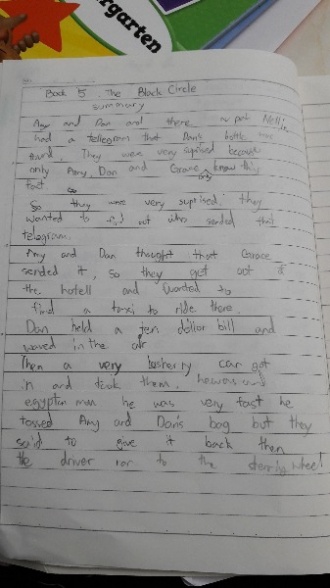 rgarten
Book 5 The Black Circle
summary
Amy and Dan and there Nellie
had a tellegram that Dan's bottle was
found. They were very suprised because
only Amy, Dan and Grace know this
fact
So they were very suprised, they
wanted to find out who sended that
telegram.
Amy and Dan thought that Grace
sended it, so they got out of
the hotell and wanted to
find a taxi to ride there.
Dan held a ten dollar bill and
waved in the air
Then a very car got
in and took them. he was and
egyptian man he was very fast he
tossed Amy and Dan's bag but they
said to give it back then
the driver ran to the wheel